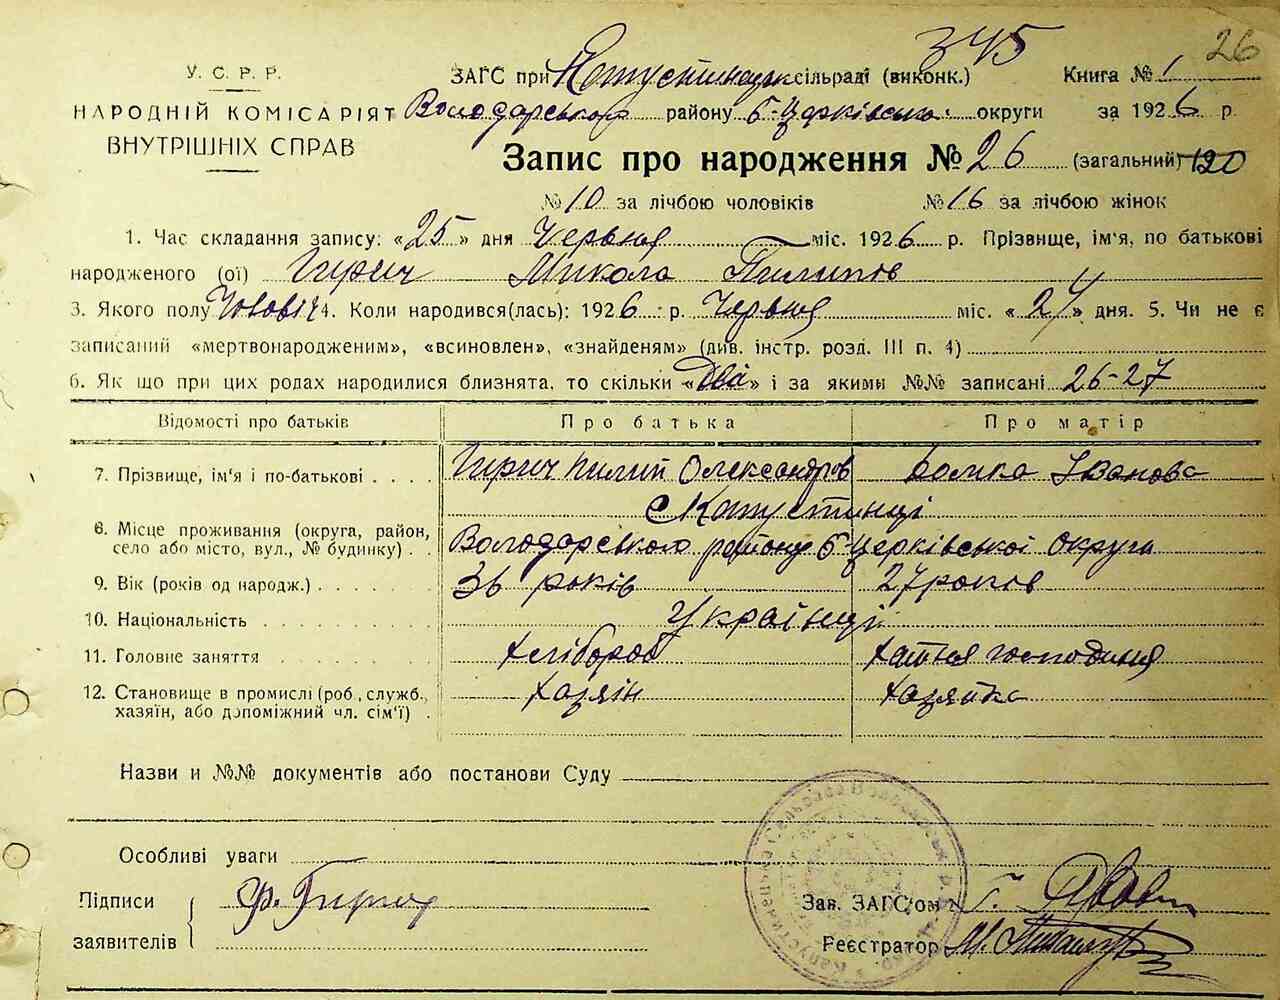 345 26
У. С. Р. Р.
НАРОДНІЙ КОМІСАРІЯТ
ВНУТРІШНІХ СПРАВ
ЗАГС при Капустинецьк сільраді (виконк.) Книга № 1
Володарського району Б-Церківської округи за 1926 р.
Запис про народження № 26 (загальний) 120
№ 10 за лічбою чоловіків № 16 за лічбою жінок
1. Час складання запису: «25» дня Червня міс. 1926 р. Прізвище, ім'я, по батькові
народженого (ої) Гирич Микола Пилипов
3. Якого полу Чоловіч 4. Коли народився(лась): 1926 р. Червня міс. «24» дня. 5. Чи не є
записаний «мертвонародженим», «всиновлен», «знайденям» (див. інстр. розд. III п. 4)
6. Як що при цих родах народилися близнята, то скільки «Два» і за якими №№ записані 26-27
Відомості про батьків Про батька Про матір
7. Прізвище, ім'я і по-батькові Гирич Пилип Олександров Домка Іванова
с Капустинці
8. Місце проживання (округа, район,
село або місто, вул., № будинку) Володарського району Б Церківської округи
9. Вік (років од народж.) 36 років 27 років
10. Національність Українці
11. Головне заняття Хлібороб Хатня господиня
12. Становище в промислі (роб., служб.,
хазяїн, або допоміжний чл. сім'ї) Хазяїн Хазяйка
Назви и №№ документів або постанови Суду
Особливі уваги
Підписи
заявителів
Зав. ЗАГС'ом
Реєстратор